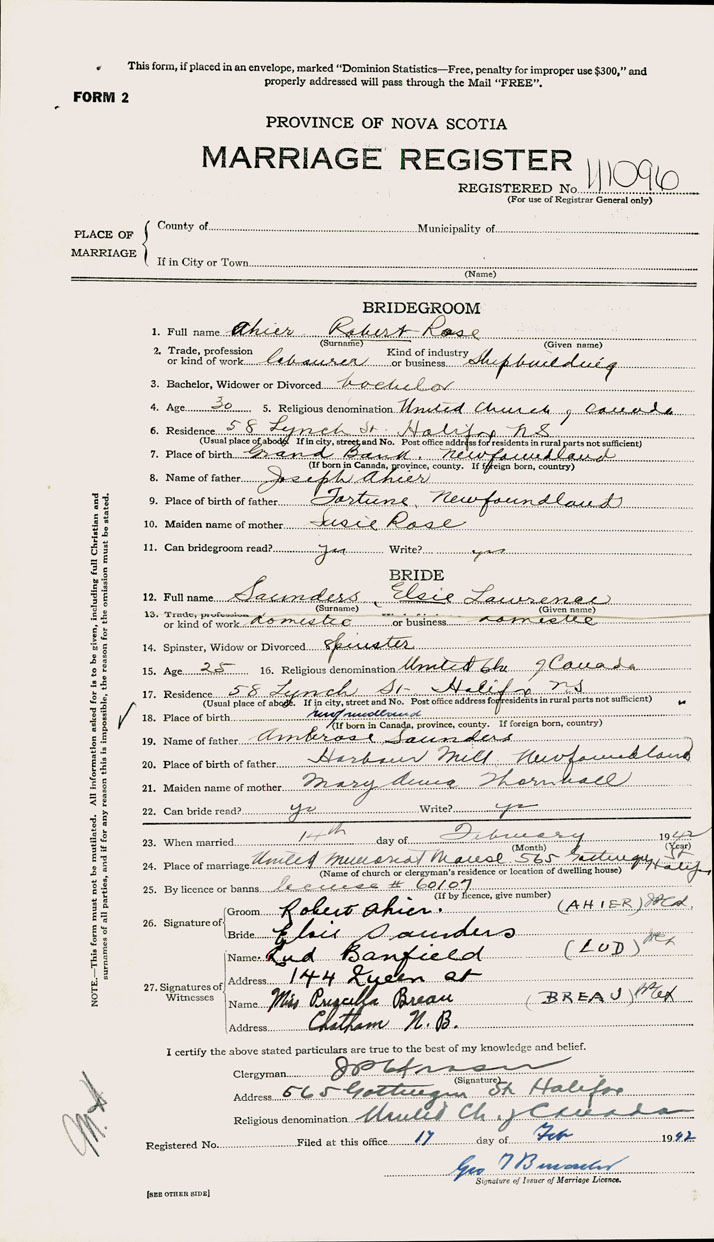 This form, if placed in an envelope, marked "Dominion Statistics—Free, penalty for improper use $300," and
properly addressed will pass through the Mail "FREE".
FORM 2
PROVINCE OF NOVA SCOTIA
MARRIAGE REGISTER
REGISTERED No. 111096
(For use of Registrar General only)
PLACE OF MARRIAGE
County of Municipality of
If in City or Town
(Name)
BRIDEGROOM
1. Full name Ahier Robert Rose
(Surname) (Given name)
2. Trade, profession or kind of work labourer Kind of industry or business Shipbuilding
3. Bachelor, Widower or Divorced bachelor
4. Age 30 5. Religious denomination United Church of Canada
6. Residence 58 Lynch St. Halifax NS
(Usual place of abode. If in city, street and No. Post office address for residents in rural parts not sufficient)
7. Place of birth Grand Bank, Newfoundland
(If born in Canada, province, county. If foreign born, country)
8. Name of father Joseph Ahier
9. Place of birth of father Fortune, Newfoundland
10. Maiden name of mother Susie Rose
11. Can bridegroom read? yes Write? yes
BRIDE
12. Full name Saunders, Elsie Lawrence
(Surname) (Given name)
13. Trade, profession
or kind of work domestic or business domestic
14. Spinster, Widow or Divorced Spinster
15. Age 25 16. Religious denomination United Ch. of Canada
17. Residence 58 Lynch St. Halifax NS
(Usual place of abode. If in city, street and No. Post office address for residents in rural parts not sufficient)
18. Place of birth newfoundland
(If born in Canada, province, county. If foreign born, country)
19. Name of father Ambrose Saunders
20. Place of birth of father Harbour Mill Newfoundland
21. Maiden name of mother Mary Anna Thornhall
22. Can bride read? yes Write? yes
23. When married 14th day of February 1942
(Month) (Year)
24. Place of marriage United Memorial Manse 565 Gottingen St Halifax
(Name of church or clergyman's residence or location of dwelling house)
25. By licence or banns license # 60107
(If by licence, give number)
26. Signature of
Groom Robert Ahier. (AHIER)
Bride Elsie Saunders
27. Signatures of Witnesses
Name Lud Banfield (LUD)
Address 144 Queen St
Name Miss Priscilla Breau (BREAU)
Address Chatham N.B.
I certify the above stated particulars are true to the best of my knowledge and belief.
Clergyman
(Signature)
Address 565 Gottingen St. Halifax
Religious denomination United Ch. of Canada
Registered No. Filed at this office 17 day of Feb 1942
Geo
Signature of Issuer of Marriage Licence.
[SEE OTHER SIDE]
NOTE.—This form must not be mutilated. All information asked for is to be given, including full Christian and
surnames of all parties, and if for any reason this is impossible, the reason for the omission must be stated.